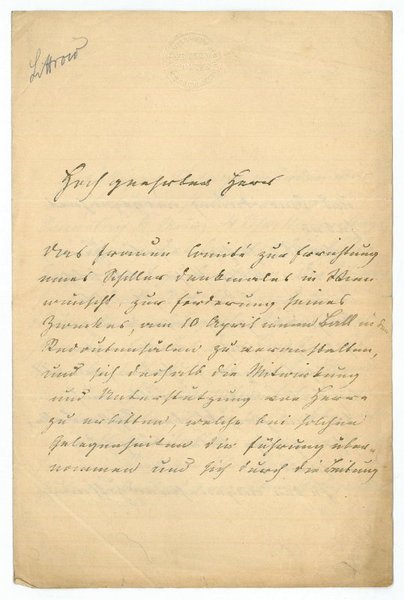 Littrow
Hoch geehrter Herr
Das Frauen Comité zur Errichtung
eines Schiller denkmales in Wien
wünscht, zur Förderung seines
Zweckes, am 10 April einen Ball in den
Redoutensälen zu veranstalten,
und sich deshalb die Mitwirkung
und Unterstützung von Herrn
zu erbitten welche bei solchen
Gelegenheiten die Führung über-
nommen und sich durch die Leitung